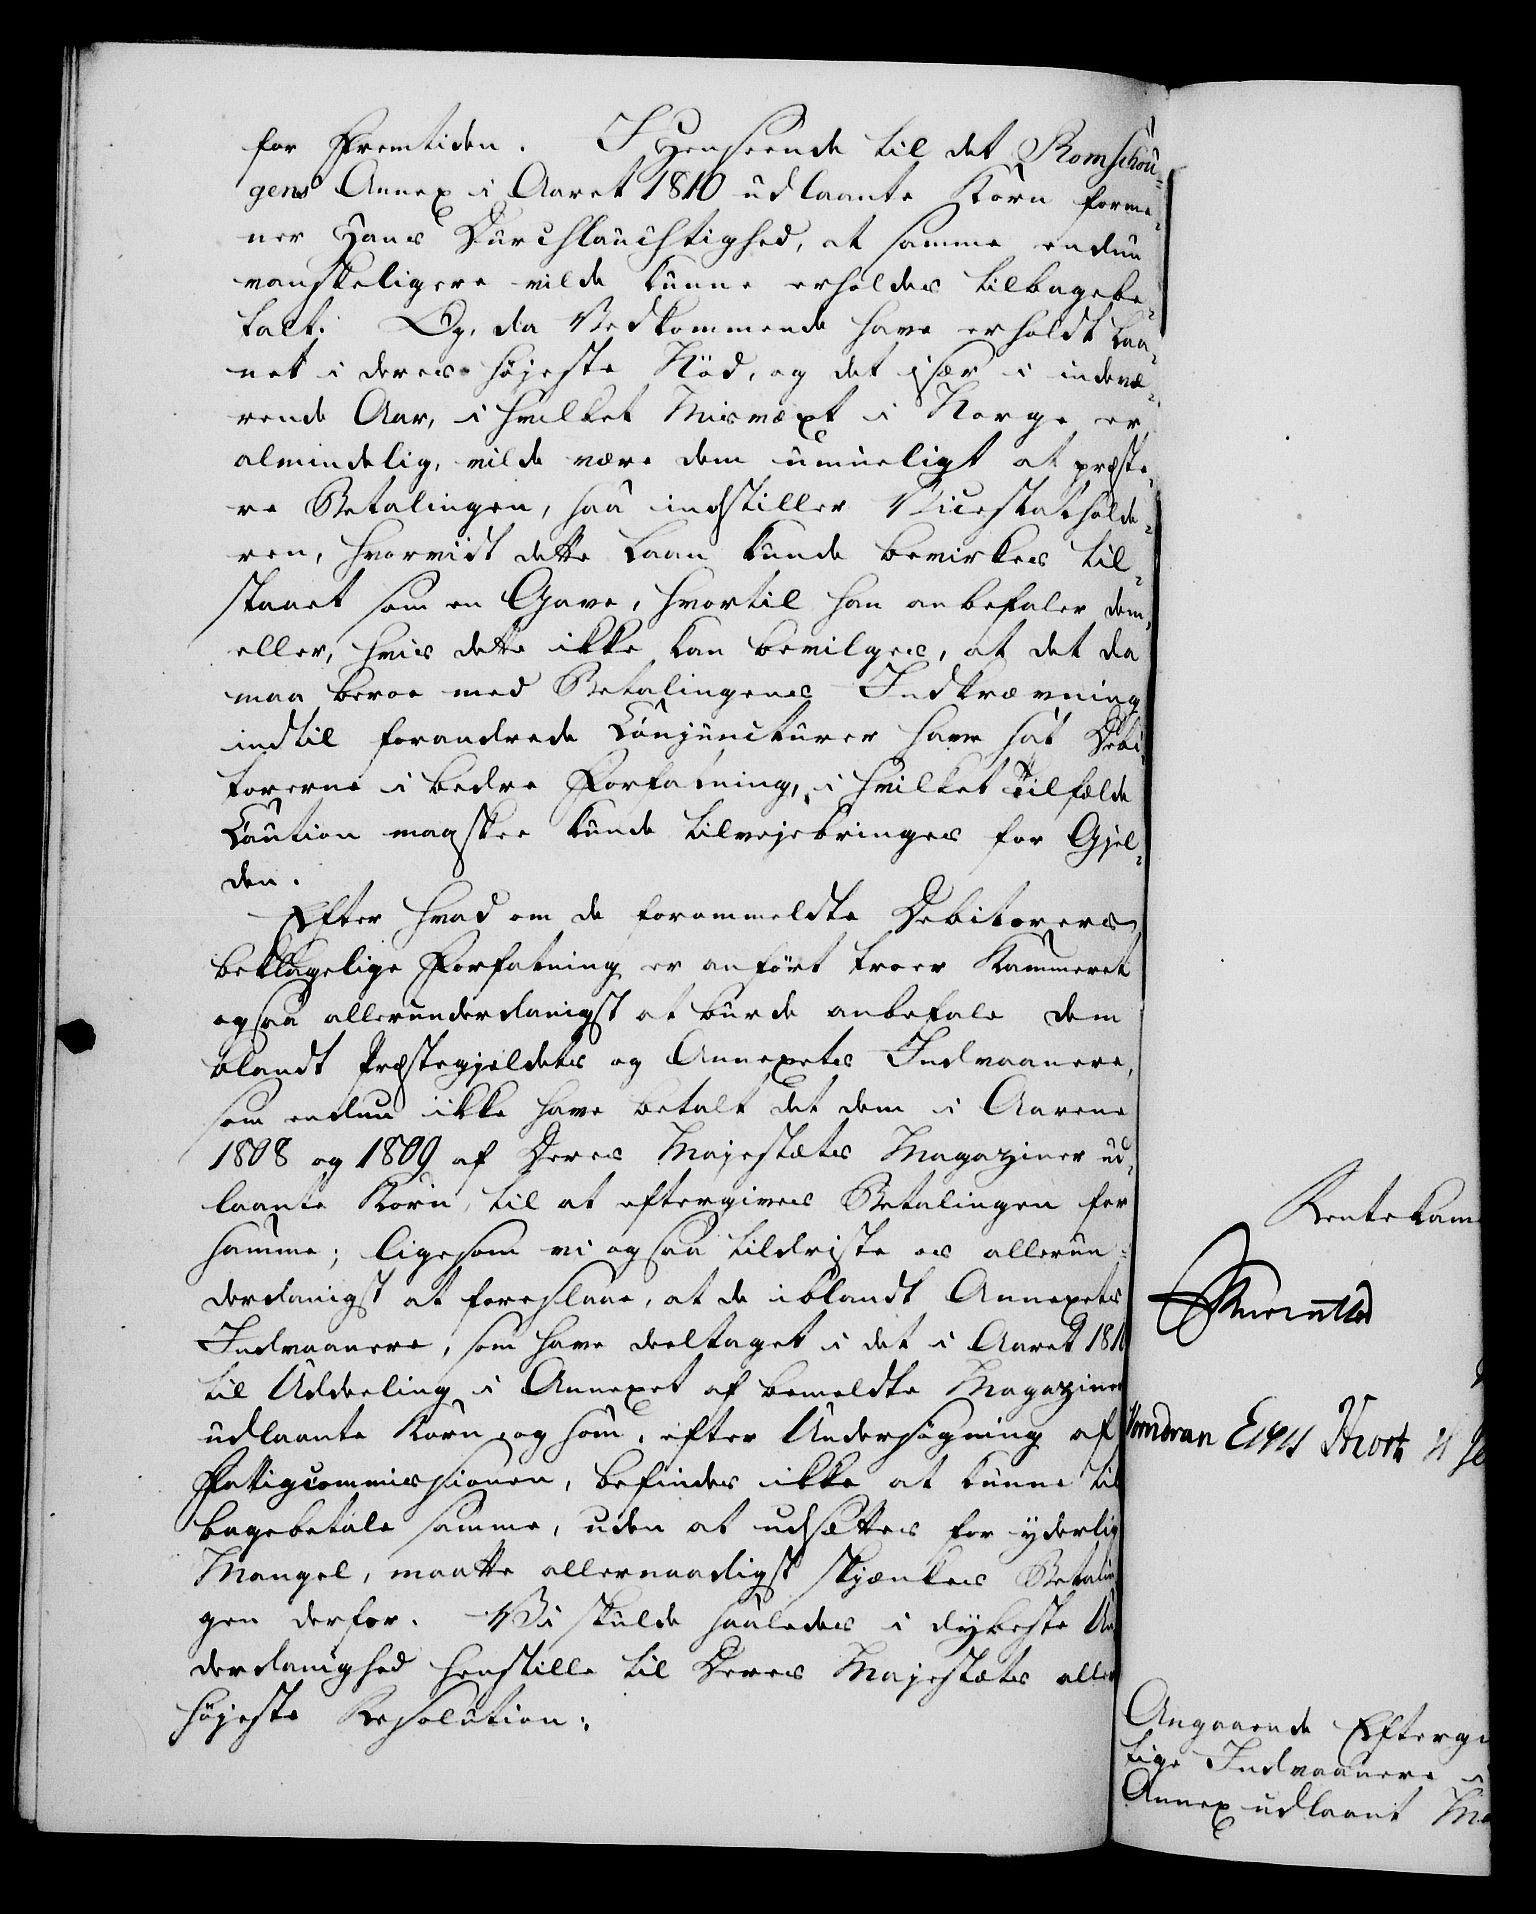 for Fremtiden. I Henseende til det Romschou-
gens Annex i Aaret 1810 udlaante Korn forme-
ner Hans Durchlauchtighed, at samme endnu
vanskeligere vilde kunne erholdes tilbagebe-
talt. Og, da Vedkommende have erholdt Laa-
net i deres højeste Nød, og det især i indevæ-
rende Aar, i hvilket Misvæxt i Norge er
almindelig, vilde være dem umueligt at præste-
re Betalingen, saa indstiller Vicestatholde-
ren, hvorvidt dette Laan kunde bevirkes til-
staaet som en Gave, hvortil han anbefaler dem,
eller, hvis dette ikke kan bevilges, at det da
maa beroe med Betalingens Indkrævning
indtil forandrede Conjuncturer have sat Debi-
torerne i bedre Forfatning, i hvilket Tilfælde
Caution maaskee kunde tilvejebringes for Gjel-
den.
Efter hvad om de forommeldte Debitorers
beklagelige Forfatning er anført troer Kammeret
ogsaa allerunderdanigst at burde anbefale dem
blandt Præstegjeldets og Annexets Indvaanere,
som endnu ikke have betalt det dem i Aarene
1808 og 1809 af Deres Majestæts Magaziner ud-
laante Korn, til at eftergives Betalingen for
samme; ligesom vi ogsaa tildriste os allerun-
derdanigst at foreslaae, at de iblandt Annexets
Indvaanere, som have deeltaget i det i Aaret 1810
til Uddeeling i Annexet af bemeldte Magaziner
udlaante Korn, og som, efter Undersøgning af
Fattigcommissionen, befindes ikke at kunne til
bagebetale samme, uden at udsættes for yderlig
Mangel, maatte allernaadigst skjænkes Betalin
gen derfor. Vi skulde saaledes i dybeste Un
derdanighed henstille til Deres Majestæts aller
højeste Resolution:
Rentekam
Vondran Eivers Thort
Angaaende Eftergi
tige Indvaanere i
Annex udlaant Ma